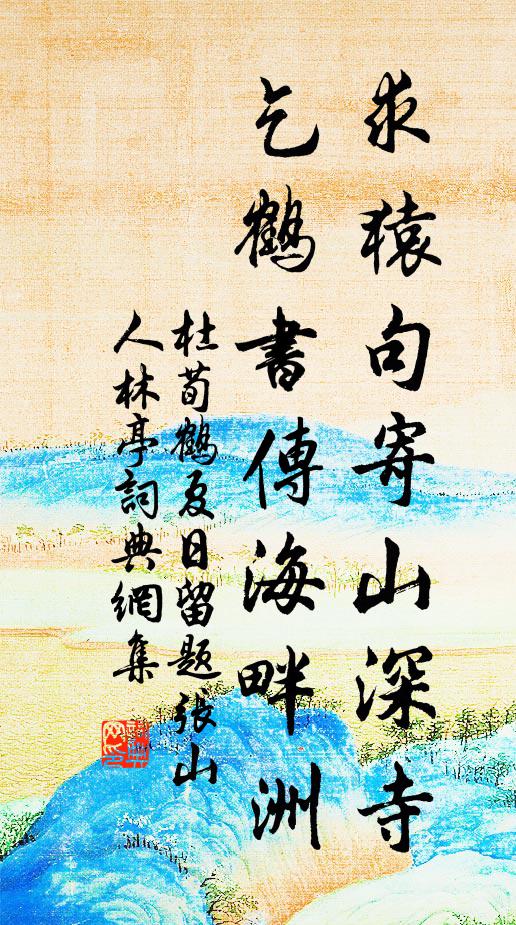 求猿句寄山深寺
乞鶴書傳海畔洲
杜荀鶴夏日留題張山
人林亭詞典網集